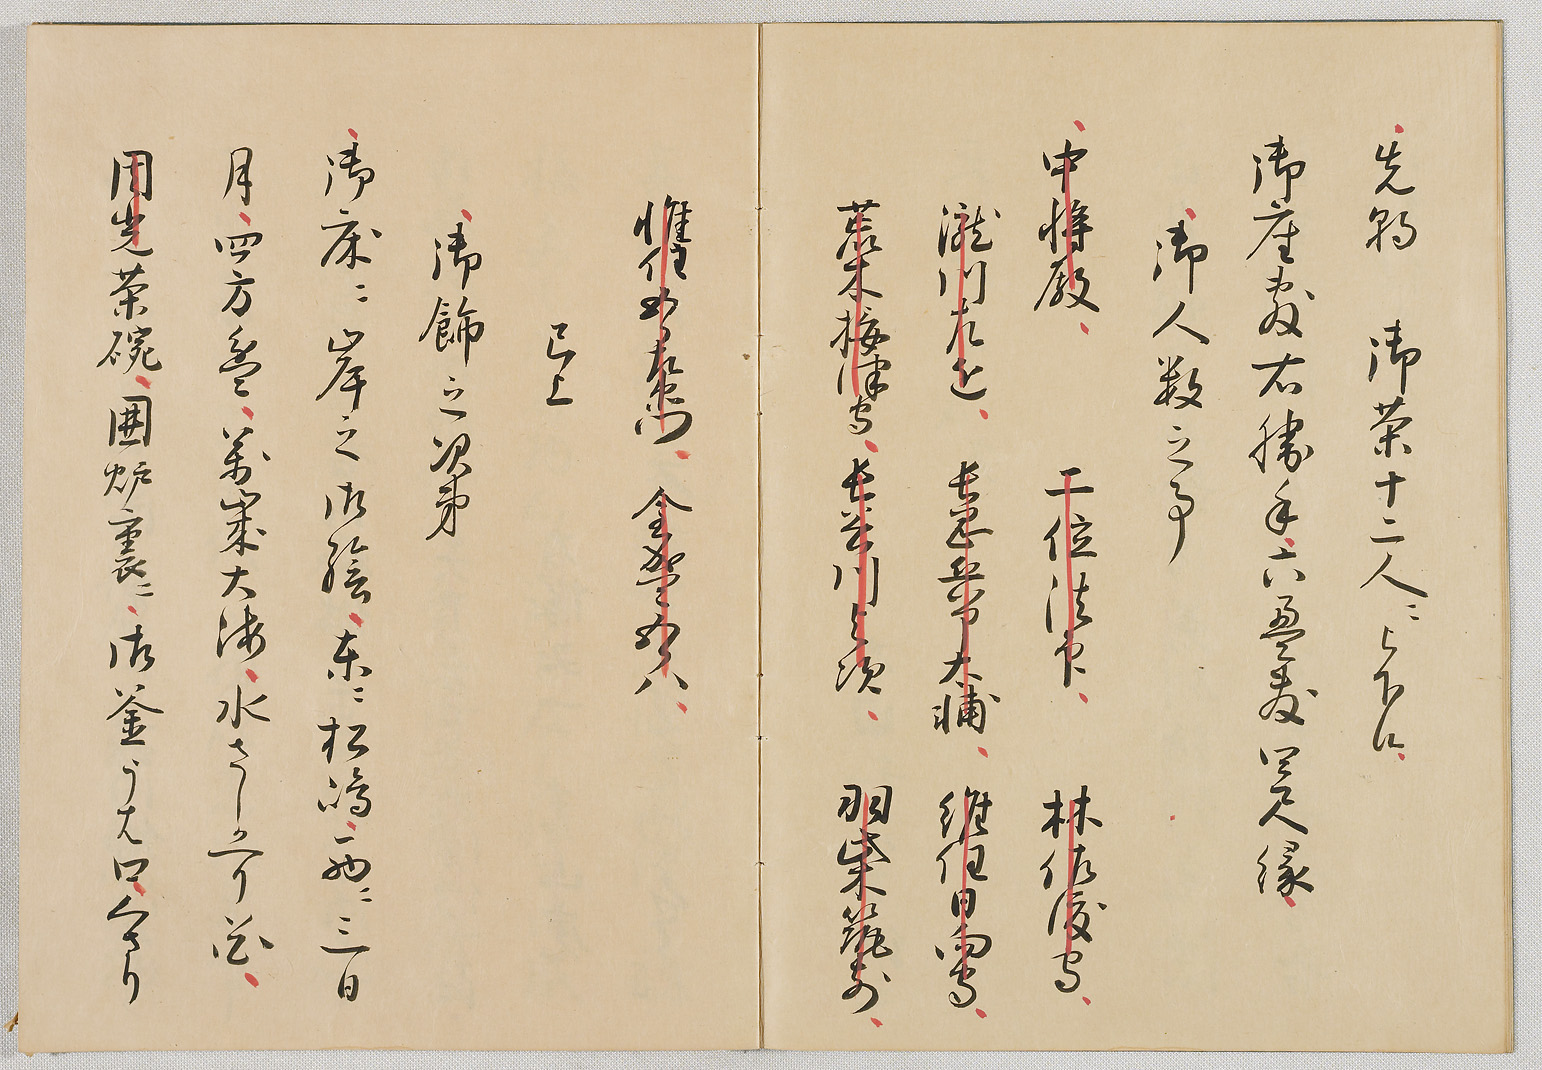 先朝　御茶十二人ニ被下候
御座敷右勝手六畳敷四尺縁
御人数之事
中将殿　二位法印　林佐渡守
滝川左近　長岡兵部大輔　惟任日向守
荒木摂津守　長谷川与次　羽柴筑前
惟住五郎左衛門　金森五八
已上
御飾之次第
御床ニ岸之御絵東ニ松嶋西ニ三日
月四方盆万歳大海水さしかへり花
周光茶碗囲炉裏ニ御釜うは口くさり